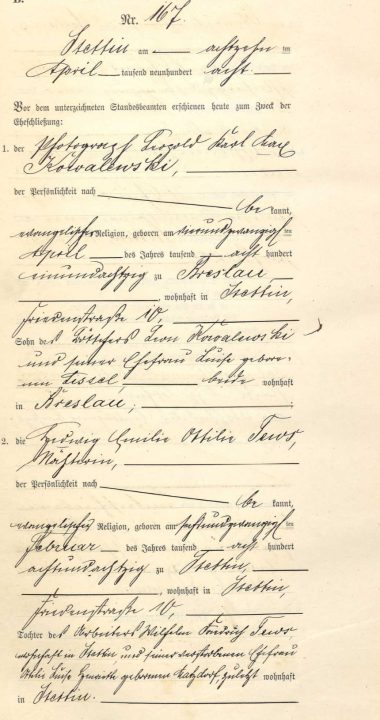 B.
Nr. 167.
Stettin am achtzehn ten
April tausend neunhundert acht.
Vor dem unterzeichneten Standesbeamten erschienen heute zum Zweck der
Eheschließung:
1. der Photograph Leopold Karl Max
Kowalewski,
der Persönlichkeit nach
be kannt,
evangelischer Religion, geboren am vierundzwanzig ten
April des Jahres tausend acht hundert
einundachtzig zu Breslau
, wohnhaft in Stettin,
Friedenstraße 10,
Sohn des Böttchers Leon Kowalewski
und seiner Ehefrau Luise gebore-
nen Tessel, beide wohnhaft
in Breslau;
2. die Hedwig Emilie Ottilie Tews,
Näherin,
der Persönlichkeit nach
be kannt,
evangelischer Religion, geboren am sechsundzwanzig ten
Februar des Jahres tausend acht hundert
achtundachtzig zu Stettin,
, wohnhaft in Stettin,
Friedenstraße 10,
Tochter des Arbeiters Wilhelm Friedrich Tews
wohnhaft in Stettin und seiner verstorbenen Ehefrau
Luise geborenen Katzdorf, zuletzt wohnhaft
in Stettin.